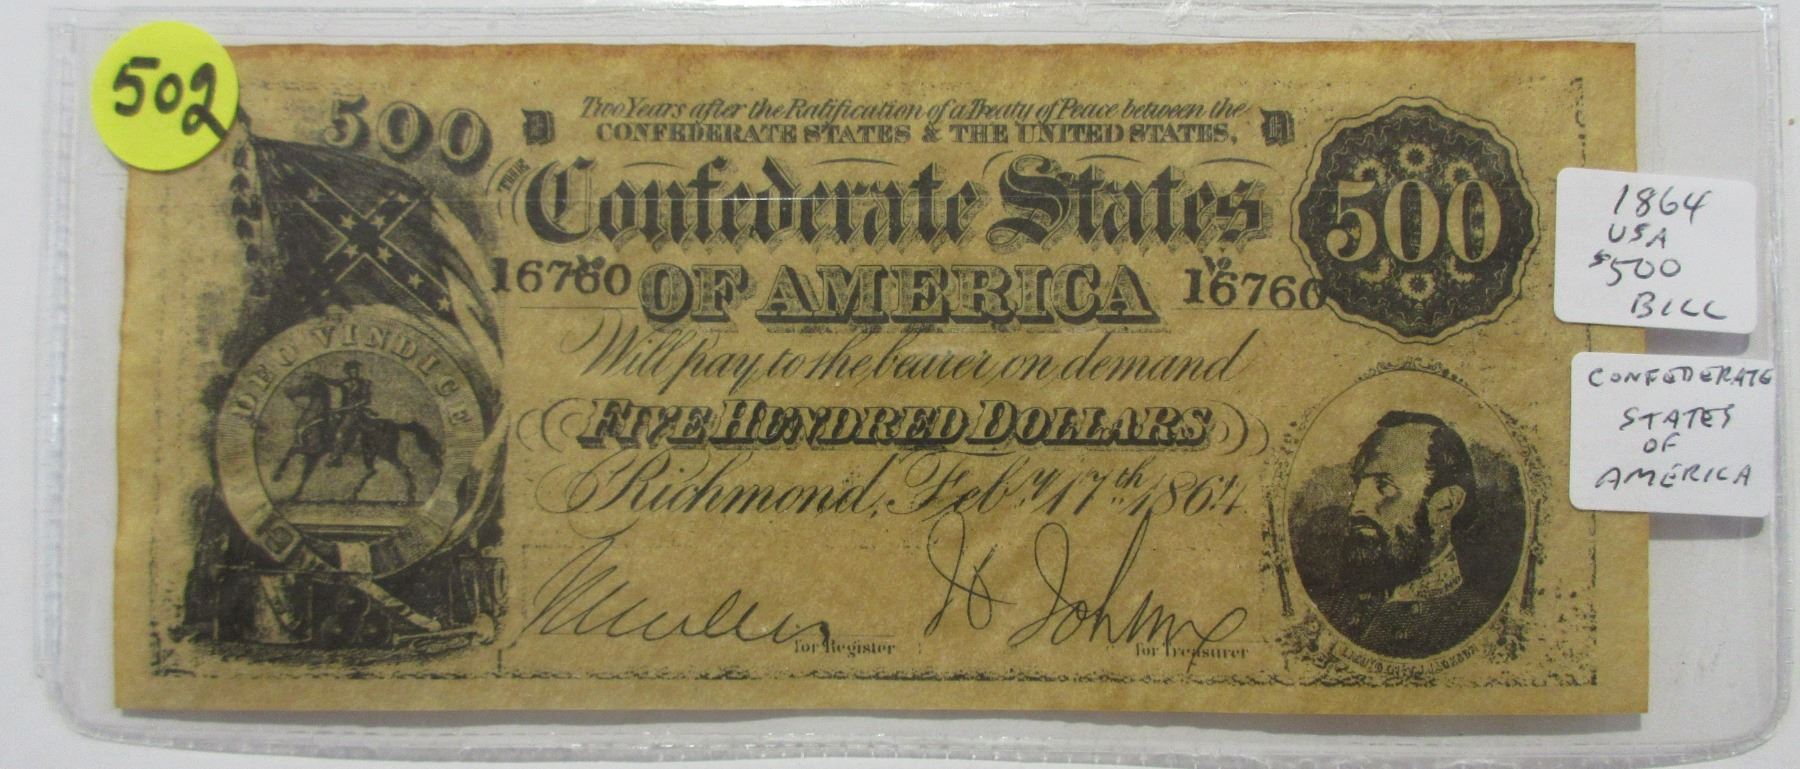 502
500
D Two Years after the Ratification of a Treaty of Peace between the D
CONFEDERATE STATES & THE UNITED STATES,
THE
Confederate States
500
16760 OF AMERICA 16760
Will pay to the bearer on demand
FIVE HUNDRED DOLLARS
Richmond, Feby. 17th 1864
DEO VINDICE
for Register
for Treasurer
1864
USA
$500
BILL
CONFEDERATE
STATES
OF
AMERICA